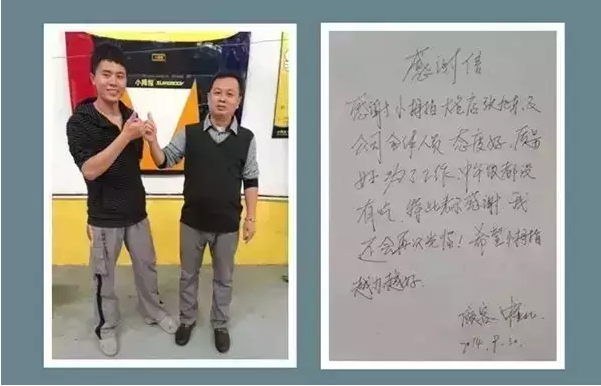 小拇指
感谢信
感谢小拇指大全店张地东及
公司全体人员态度好、质量
好为了工作、中午饭都没
有吃、特此表示感谢 我
还会再次光临！希望小拇指
越办越好.
顾客：
2014.9.30.